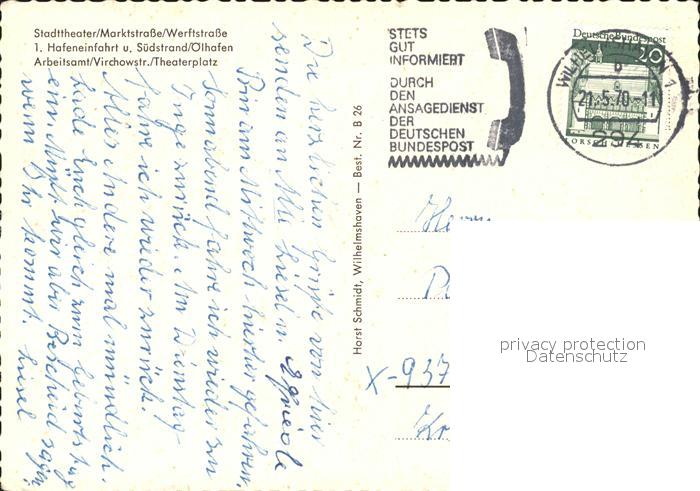 Stadttheater/Marktstraße/Werftstraße
1. Hafeneinfahrt u. Südstrand/Ölhafen
Arbeitsamt/Virchowstr./Theaterplatz
Die herzlichen Grüße von hier
senden an Alle Liesel u. Elfriede
Bin am Mittwoch hierher gefahren,
Sonnabend fahre ich wieder zu
Inge zurück. Am Dienstag
fahre ich wieder zurück.
Alles Andere mal mündlich.
Lade Euch gleich zum Geburtstag
ein. Müßt mir aber Bescheid sagen
wenn Ihr kommt. Liesel
Horst Schmidt, Wilhelmshaven — Best. Nr. B 26
STETS
GUT
INFORMIERT
DURCH
DEN
ANSAGEDIENST
DER
DEUTSCHEN
BUNDESPOST
Deutsche Bundespost
20
21.5.70-11
LORSCH/HESSEN
X-937
Kr
privacy protection
Datenschutz